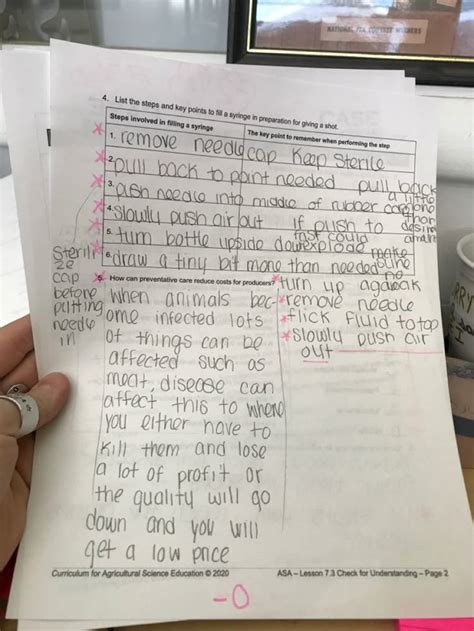 NATIONAL FFA CONTEST WINNERS
4. List the steps and key points to fill a syringe in preparation for giving a shot.
Steps involved in filling a syringe
The key point to remember when performing the step
1. remove needle cap Keep sterile
2. pull back to point needed pull back
a little
3. push needle into middle of rubber cap
desired
amount
4. slowly push air out if push to
fast could
5. turn bottle upside down explode
make
sure
no
6. draw a tiny bit more than needed
Sterili
ze
cap
before
putting
needle
in
5. How can preventative care reduce costs for producers?
turn up again
remove needle
flick fluid to top
slowly push air
out
when animals bec-
ome infected lots
of things can be
affected such as
meat, disease can
affect this to where
you either have to
kill them and lose
a lot of profit or
the quality will go
down and you will
get a low price
Curriculum for Agricultural Science Education © 2020
ASA – Lesson 7.3 Check for Understanding – Page 2
-0